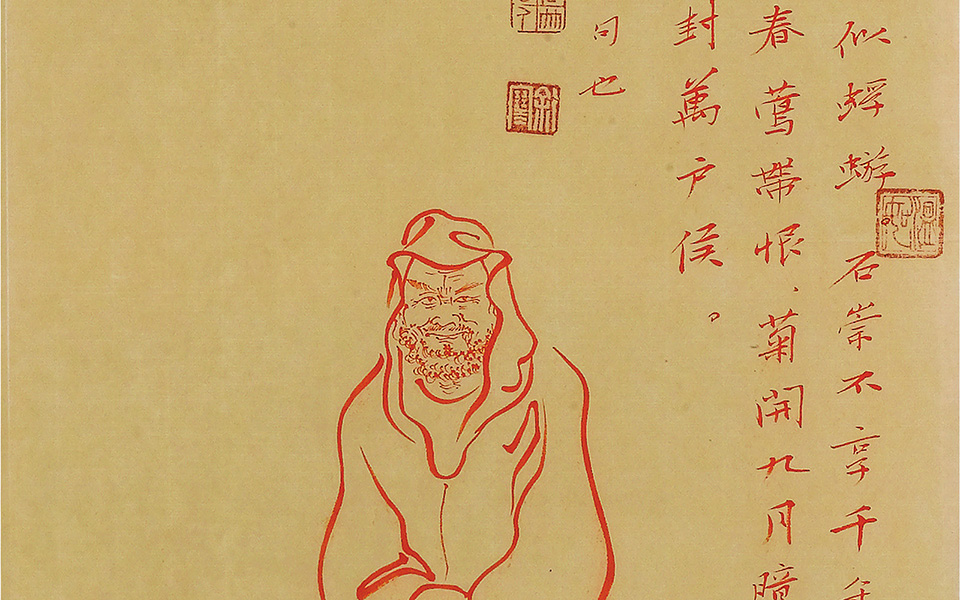 似蜉蝣石崇不享千
春鶯帶恨、菊開九月暗
封萬户侯。
句也